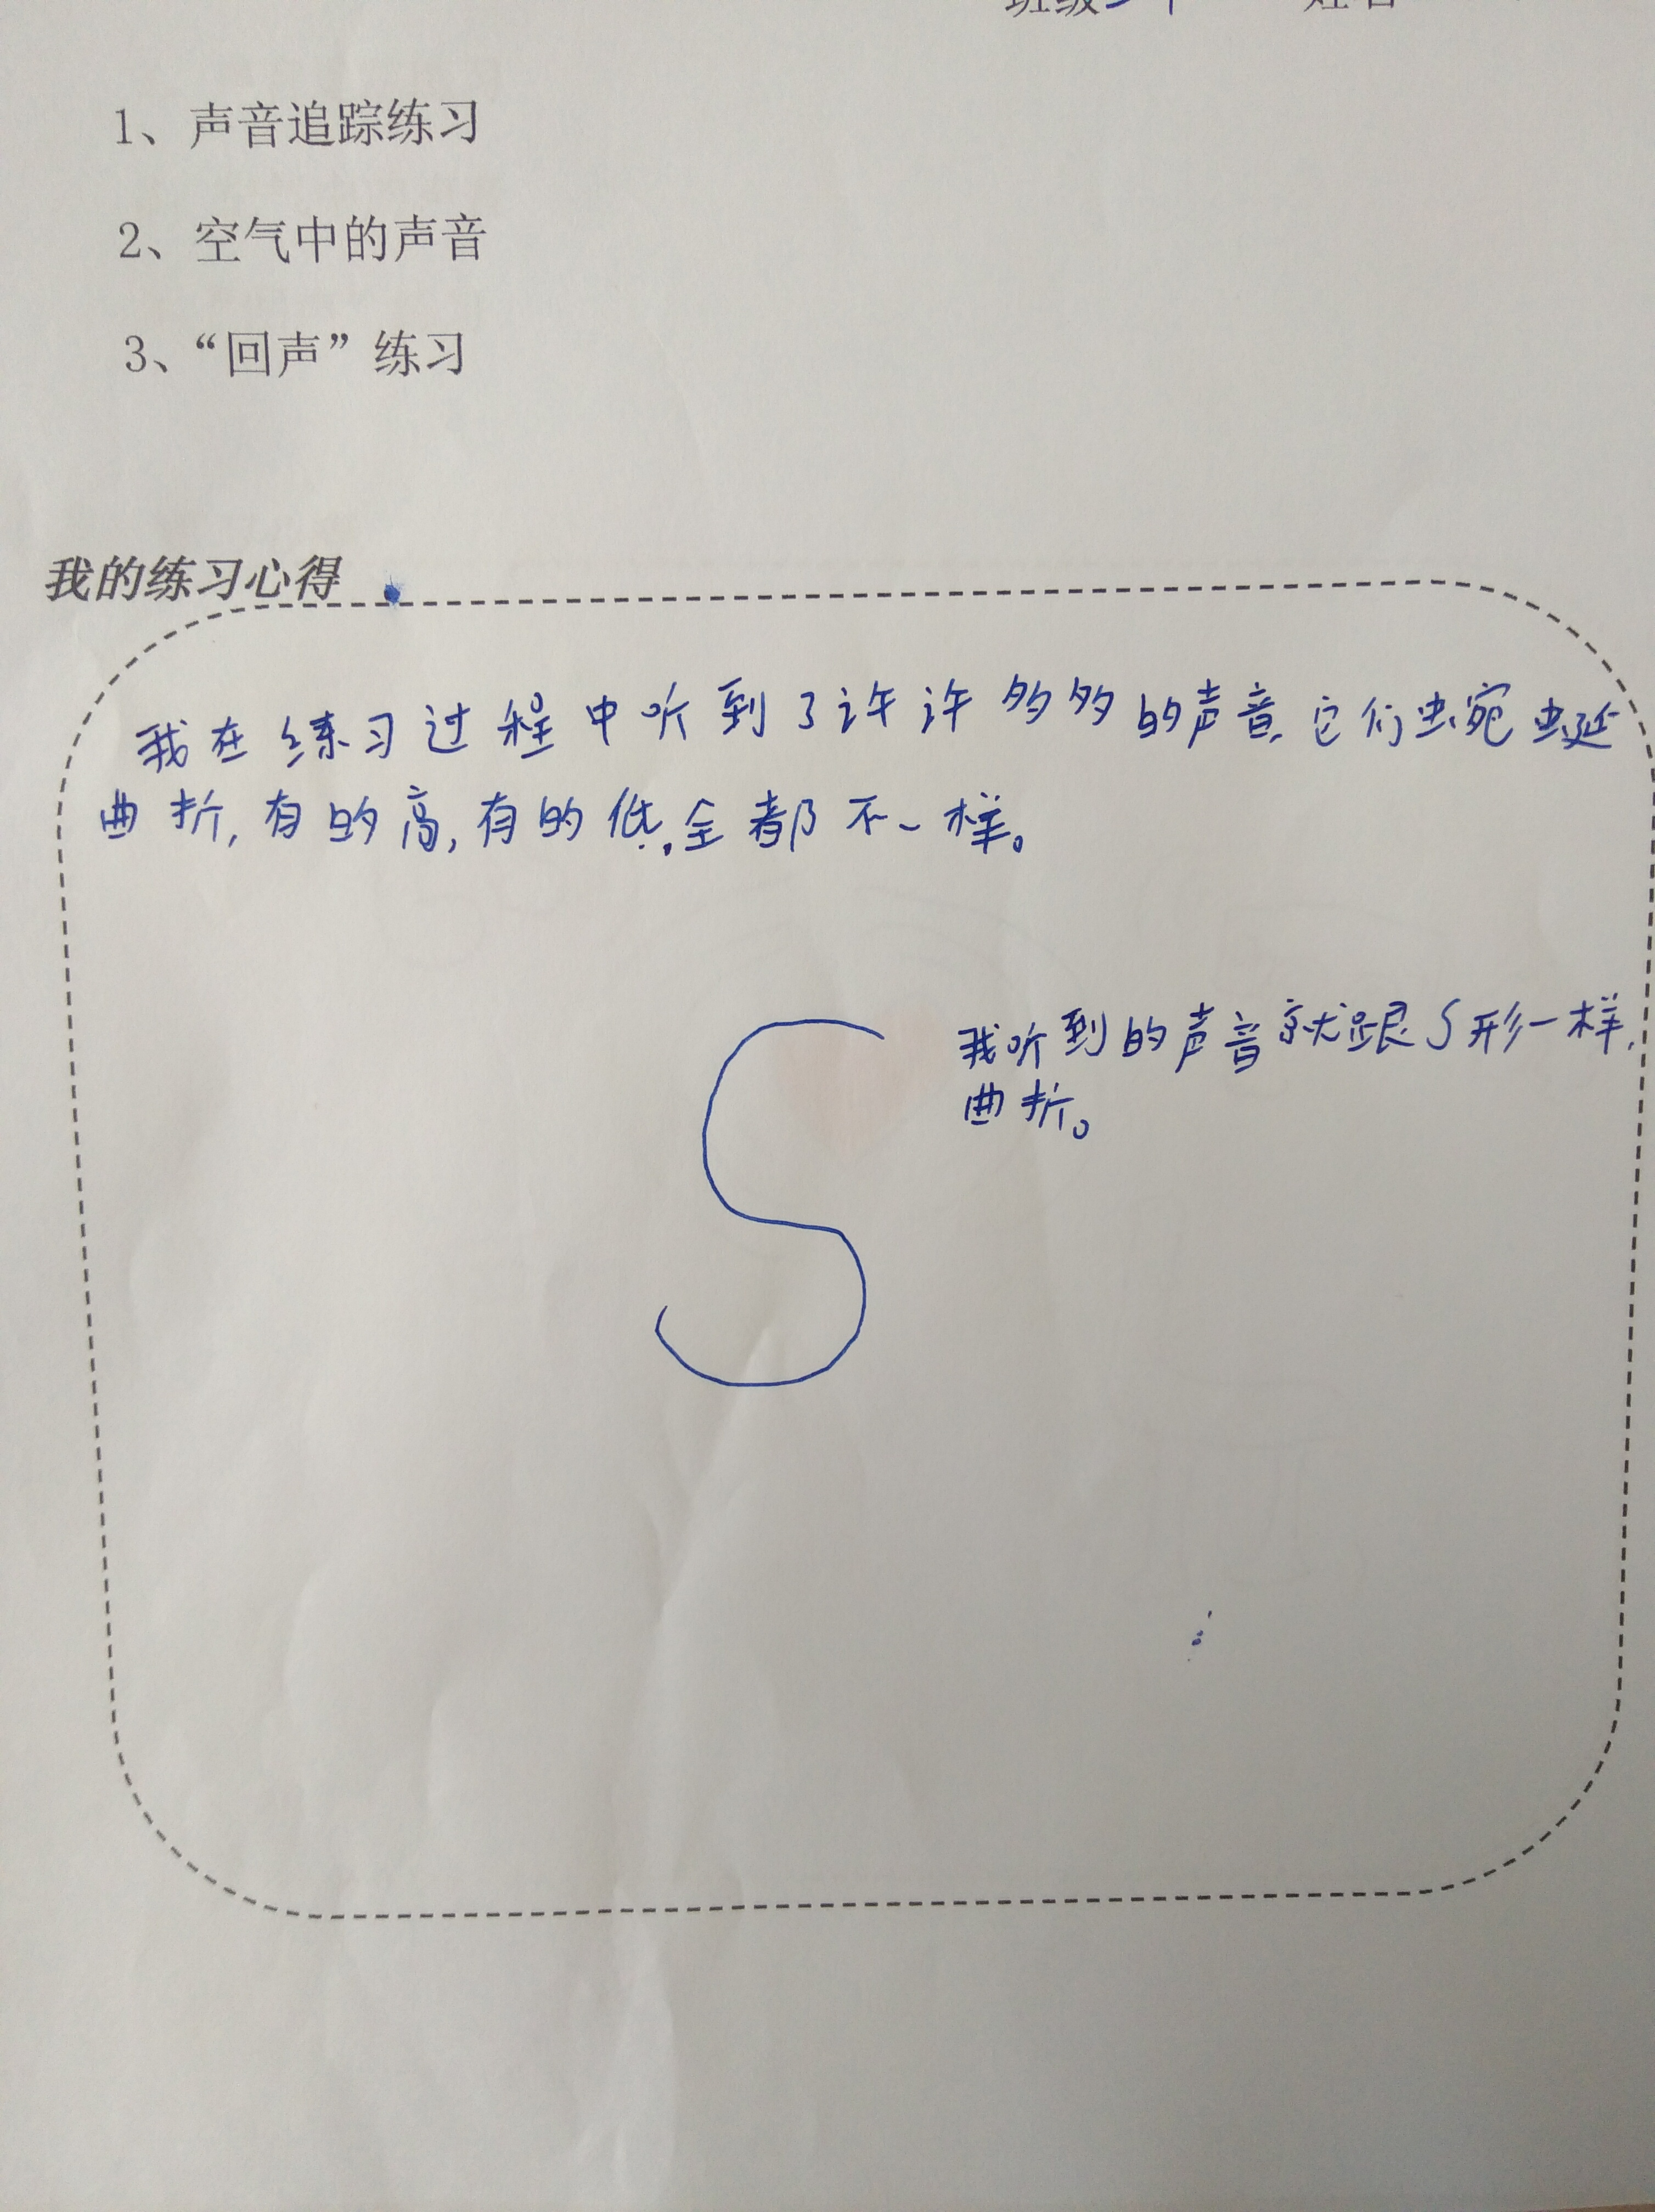 班级
姓名
1、声音追踪练习
2、空气中的声音
3、“回声”练习
我的练习心得
我在练习过程中听到了许许多多的声音,它们蜿蜒
曲折,有的高,有的低,全都不一样。
S
我听到的声音就跟S形一样,
曲折。